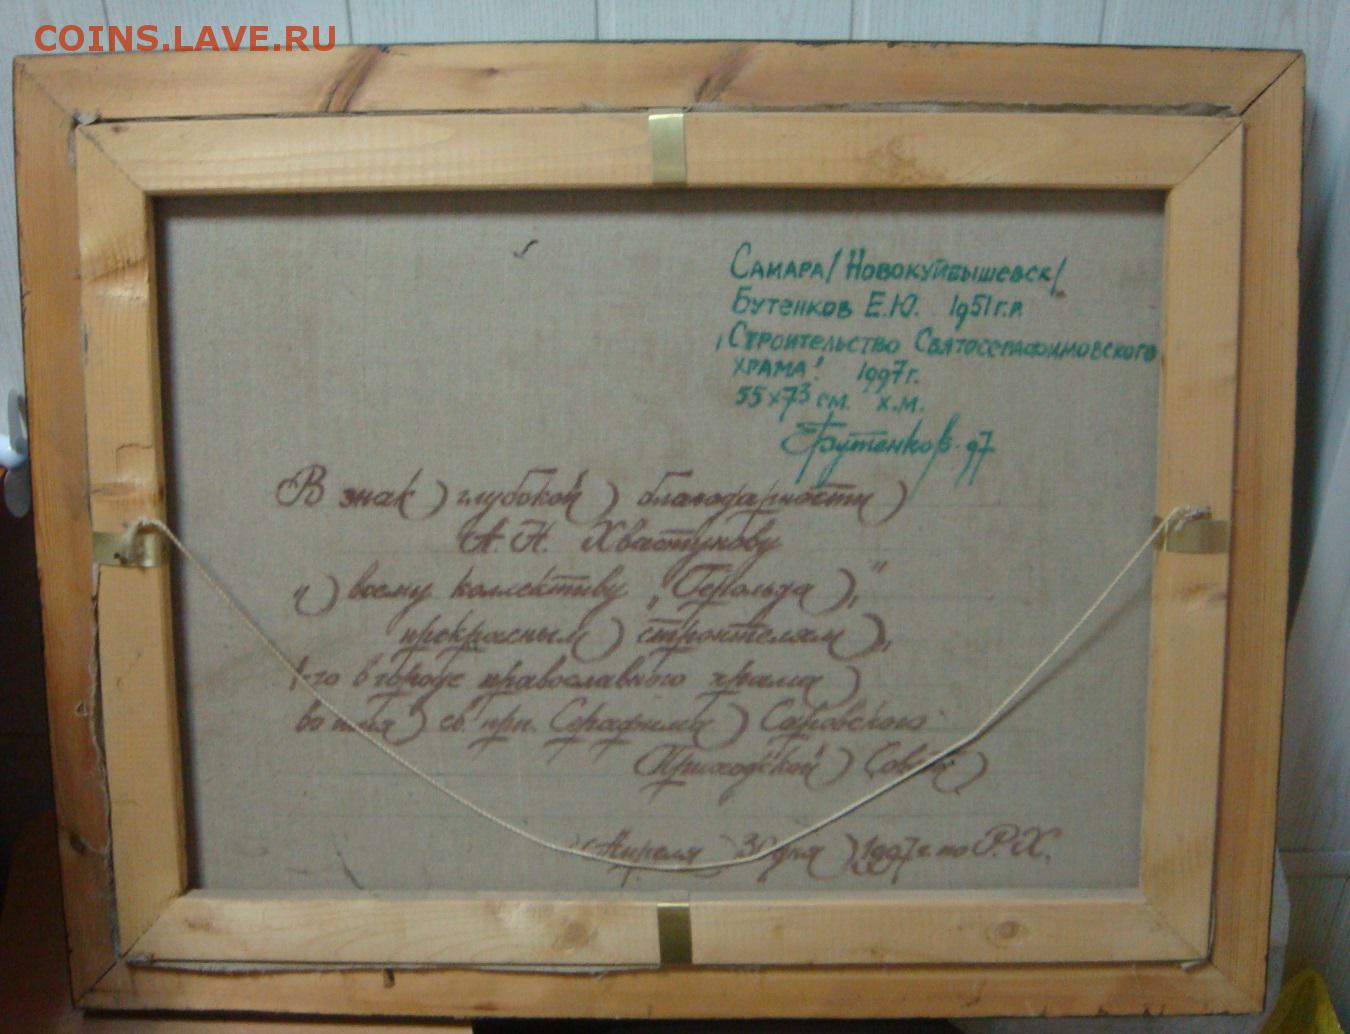 COINS.LAVE.RU
САМАРА /НОВОКУЙБЫШЕВСК/
БУТЕНКОВ Е.Ю. 1951 г.р.
"СТРОИТЕЛЬСТВО СВЯТОСЕРАФИМОВСКОГО
ХРАМА" 1997 г.
55х73 см. х.м.
Бутенков-97
В знак глубокой благодарности
А. Н. Хвастунову
и всему коллективу „Герольда",
прекрасным строителям,
1-го в городе православного храма
во имя св. прп. Серафима Саровского
Приходской Совет
Апреля дня 1997 г. по Р. Х.